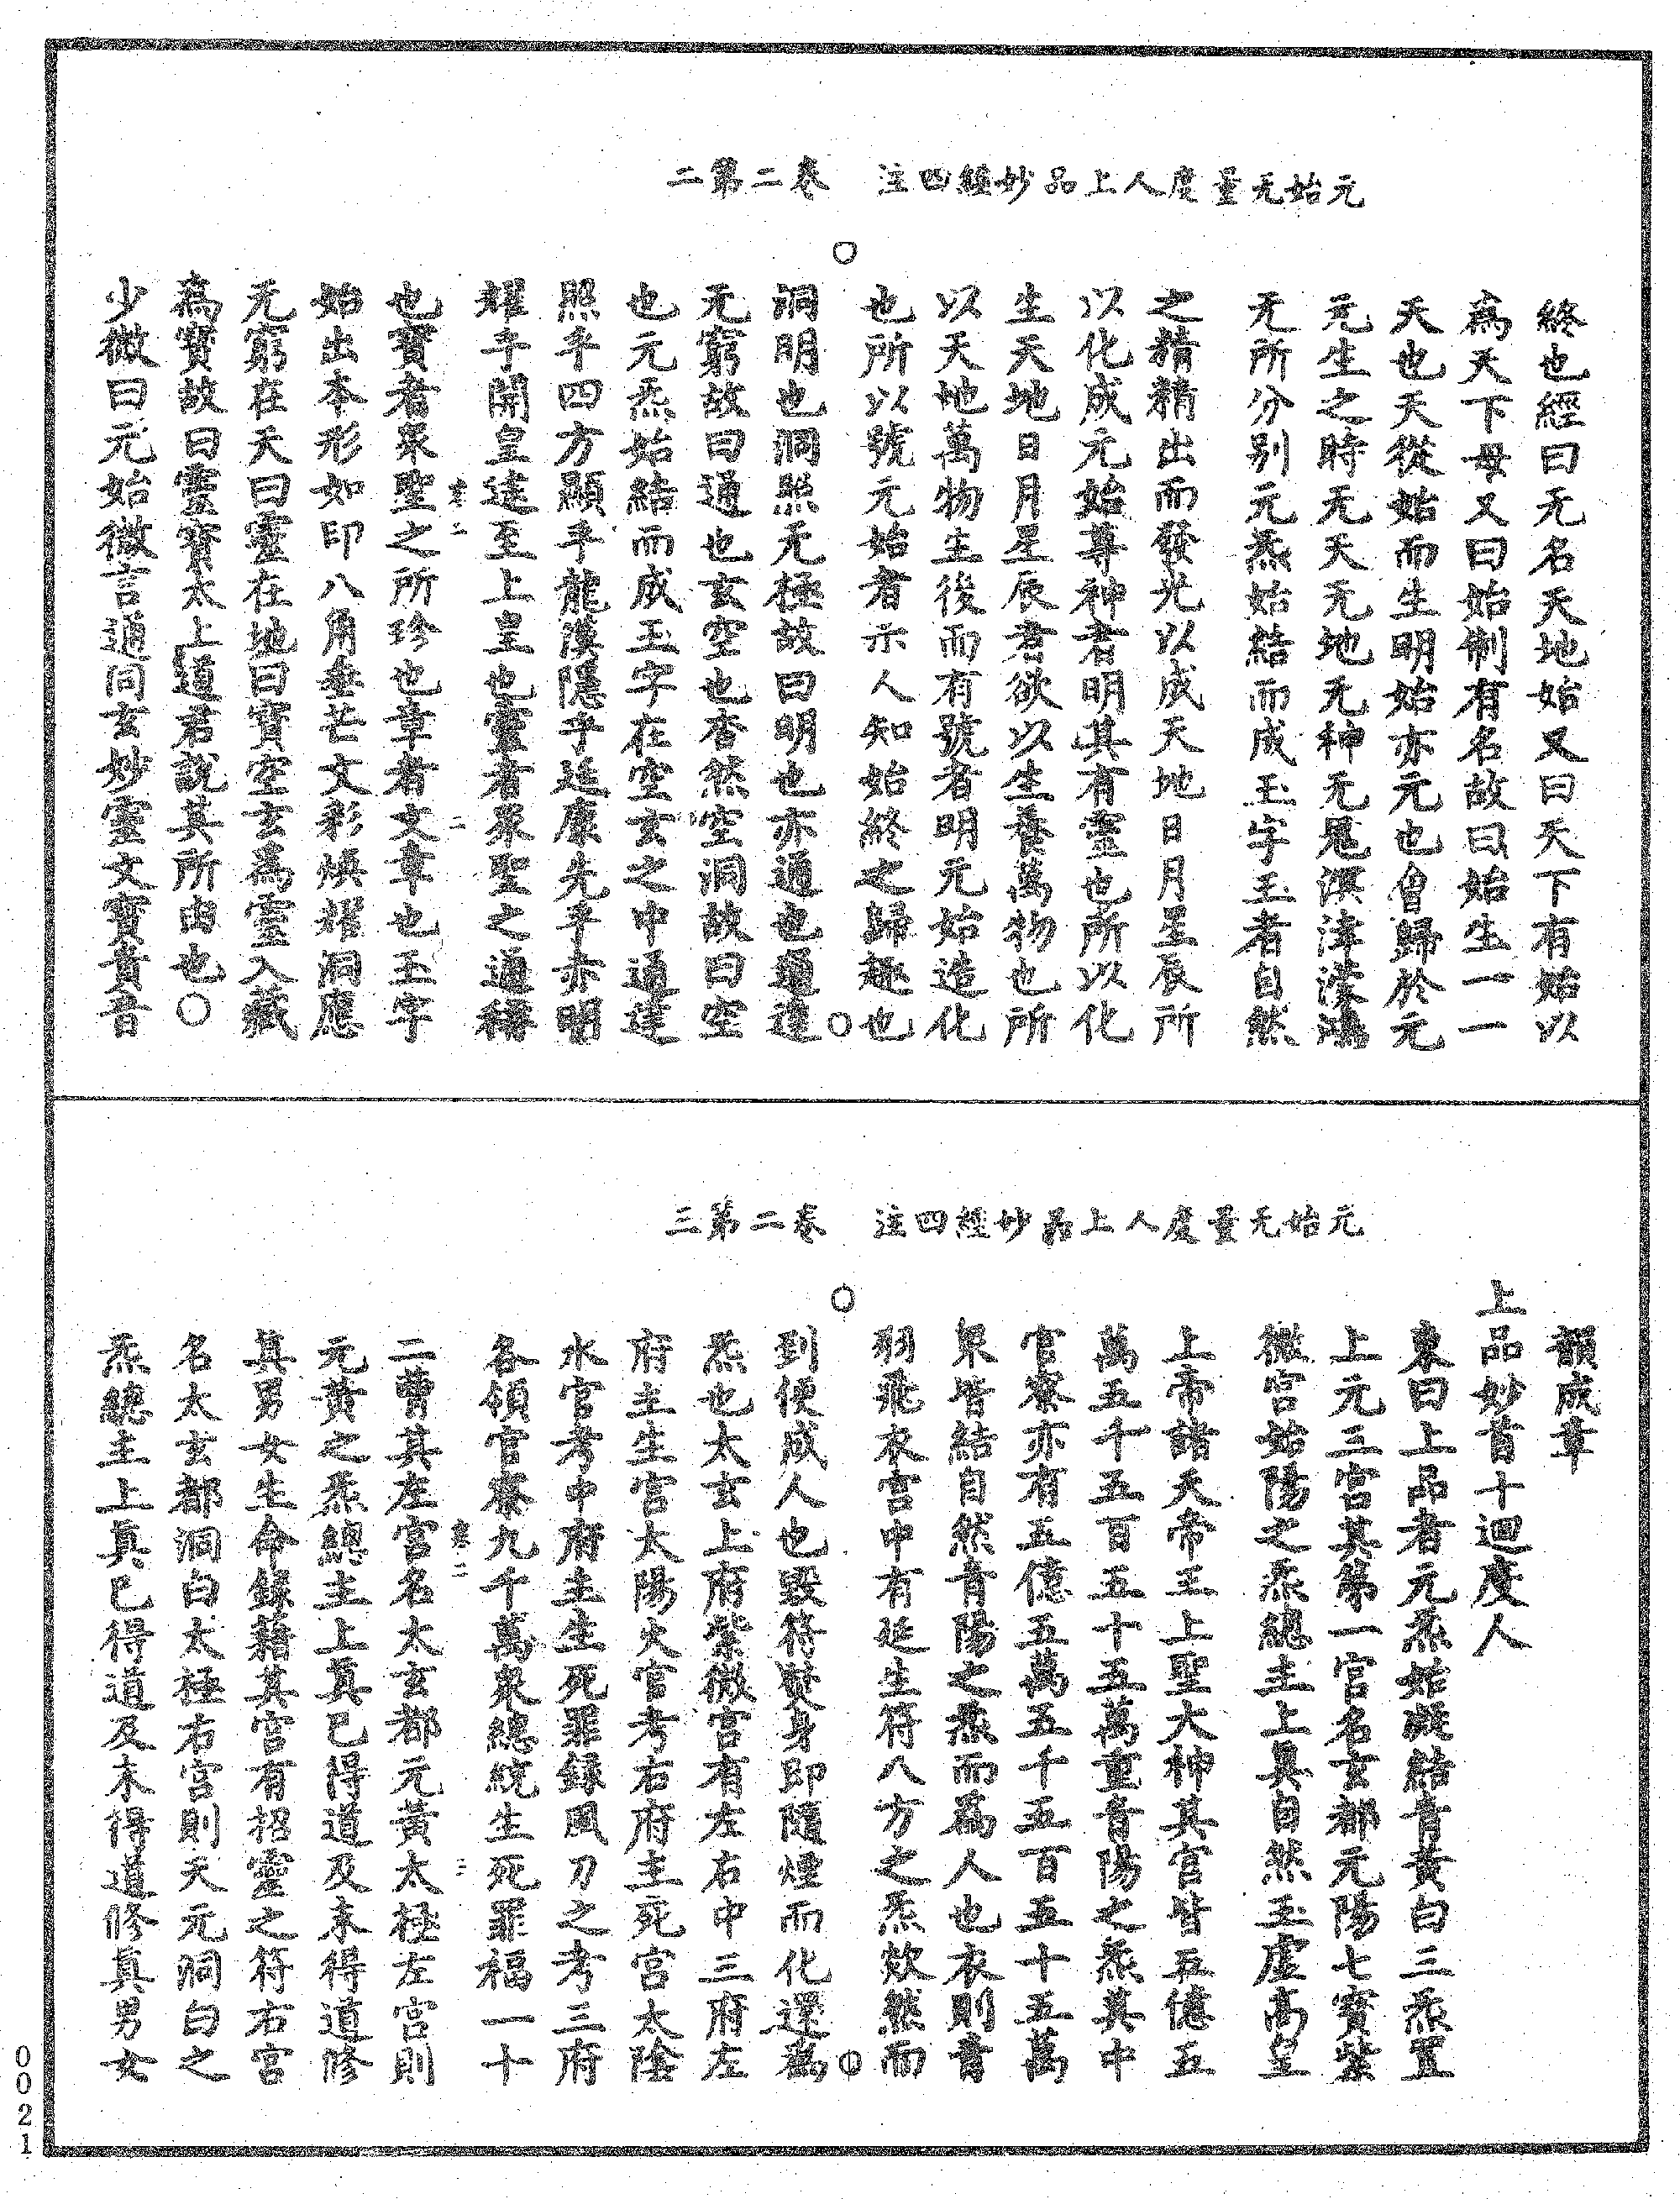 元始无量度人上品妙經四注　卷二第二
終也經曰无名天地始又曰天下有始以
爲天下母又曰始制有名故曰始生一一
天也天從始而生明始亦元也會歸於元
元生之時无天无地无神无鬼溟涬濛鴻
无所分别元炁始結而成玉字玉者自然
之精精出而發光以成天地日月星辰所
以化成元始尊神者明其有靈也所以化
生天地日月星辰者欲以生養萬物也所
以天地萬物生後而有號者明元始造化
也所以號元始者示人知始終之歸趣也
○
洞明也洞照无極故曰明也亦通也通達
无窮故曰通也玄空也杳然空洞故曰空
也元炁始結而成玉字在空玄之中通達
照乎四方顯乎龍漢隱乎延康先乎赤明
耀乎開皇逮至上皇也靈者衆聖之通稱
卷二　二
也寶者衆聖之所珍也章者文章也玉字
始出本形如印八角垂芒文彩煥耀洞應
无窮在天曰靈在地曰寶空玄爲靈入藏
爲寶故曰靈寶太上道君說其所由也○
少微曰元始微言遁同玄妙靈文寶貴音
元始无量度人上品妙經四注　卷二第三
韻成章
上品妙首十迴度人
東曰上品者元炁始凝結青黄白三炁置
上元三宫其第一宫名玄都元陽七寶紫
微宫始陽之炁總主上真自然玉虚高皇
上帝諸天帝王上聖大神其官皆五億五
萬五千五百五十五萬重青陽之炁其中
官寮亦有五億五萬五千五百五十五萬
衆皆結自然青陽之炁而爲人也衣則青
羽飛衣宫中有延生符八方之炁欻然而
○
到便成人也毁符焚身即隨煙而化還爲
炁也太玄上府紫微宫有左右中三府左
府主生官太陽火官考右府主死宫太陰
水官考中府主生死罪録風刀之考三府
各領官寮九千萬衆總統生死罪福一十
卷二　三
二曹其左宫名太玄都元黄太極左宫則
元黄之炁總主上真已得道及未得道修
真男女生命録籍其宫有招靈之符右宫
名太玄都洞白太極右宫則天元洞白之
炁總主上真已得道及未得道修真男女
0021